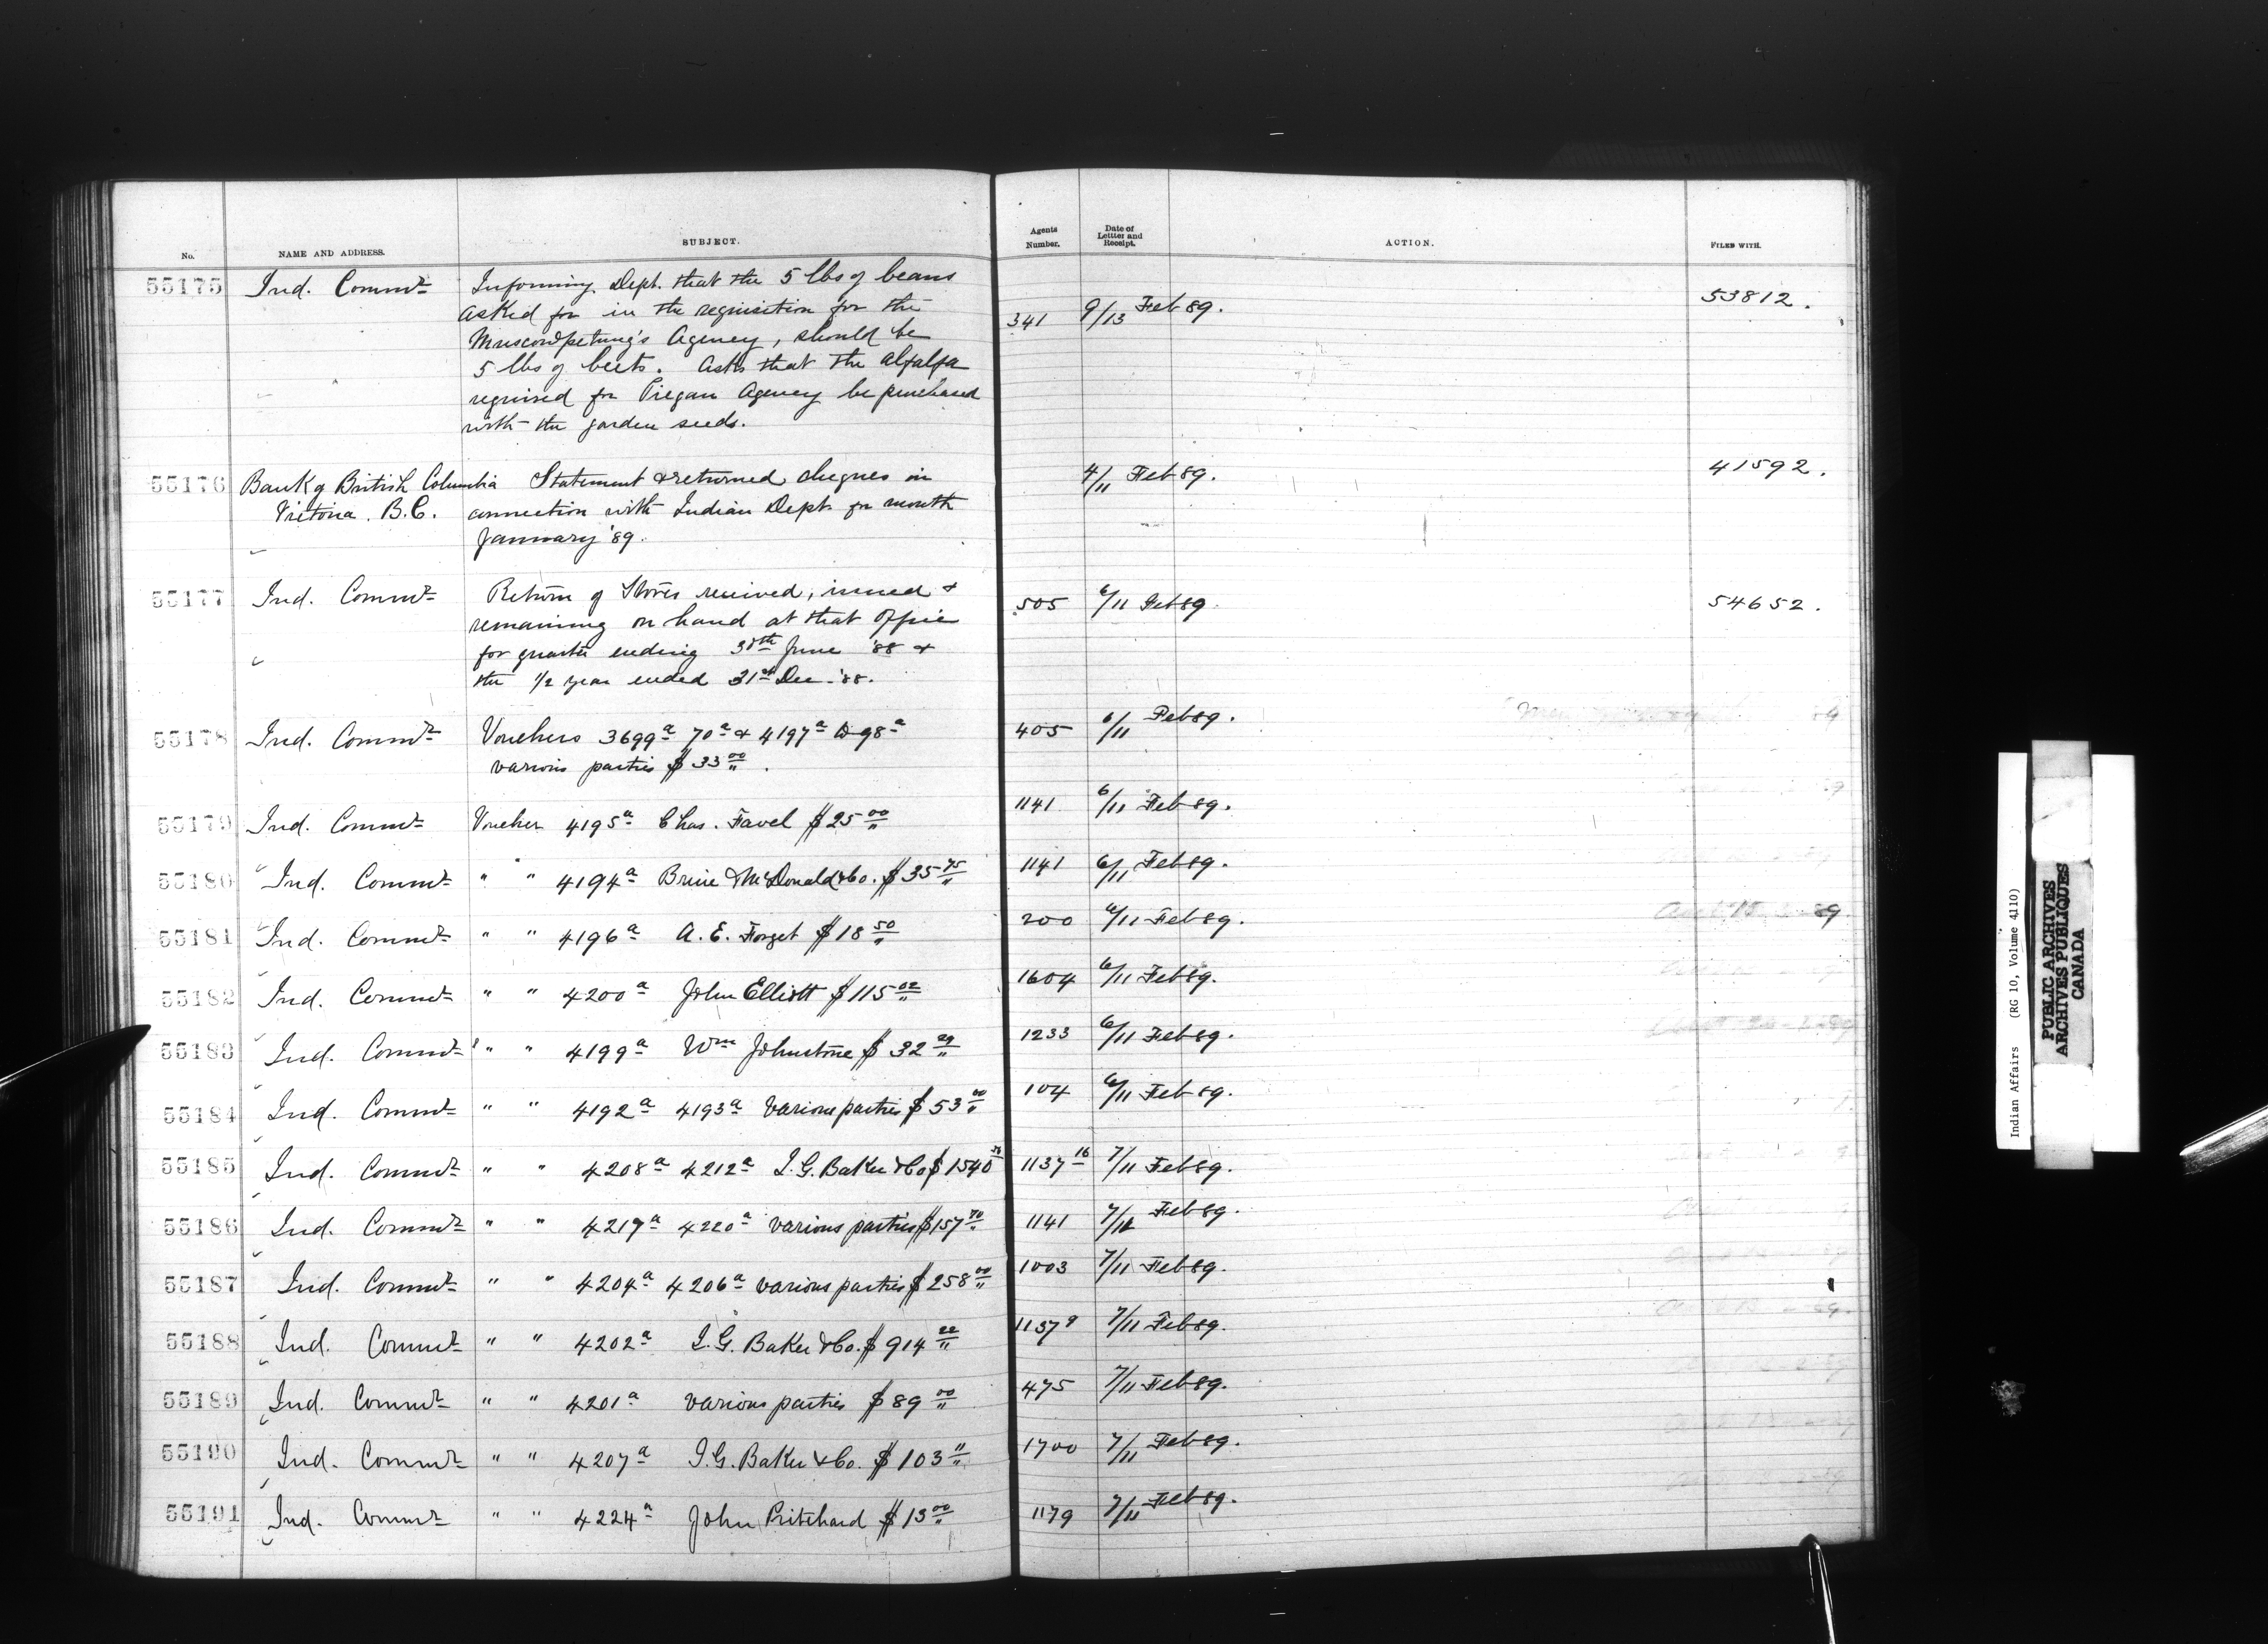 No. NAME AND ADDRESS. SUBJECT. Agents Number. Date of Letter and Receipt. ACTION. FILED WITH.
55175 Ind. Commr Informing Dept. that the 5 lbs of beans
asked for in the requisition for the 341 9/13 Feb 89. 53812.
Muscowpetung's Agency, should be
5 lbs of beets. Asks that the alfalfa
required for Piegan Agency be purchased
with the garden seeds.
55176 Bank of British Columbia Statement & returned cheques in 4/11 Feb 89. 41592.
Victoria. B.C. connection with Indian Dept. for month
January '89.
55177 Ind. Commr Return of Stores received, issued & 505 6/11 Feb 89. 54652.
remaining on hand at that Office
for quarter ending 30th June '88 &
the 1/2 year ended 31st Dec. '88.
55178 Ind. Commr Vouchers 3699a 70a & 4197a 98a 405 6/11 Feb 89.
various parties $33 00/"
55179 Ind. Commr Voucher 4195a Chas. Favel $25 00/" 1141 6/11 Feb 89.
55180 Ind. Commr " " 4194a McDonald & Co. $35 75/" 1141 6/11 Feb 89.
55181 Ind. Commr " " 4196a A. E. Forget $18 50/" 200 6/11 Feb 89. 89
55182 Ind. Commr " " 4200a John Elliott $115 02/" 1604 6/11 Feb 89.
55183 Ind. Commr " " 4199a Wm Johnstone $32 29/" 1233 6/11 Feb 89.
55184 Ind. Commr " " 4192a 4193a various parties $53 00/" 104 6/11 Feb 89.
55185 Ind. Commr " " 4208a 4212a I. G. Baker & Co $1540 1137 16 7/11 Feb 89.
55186 Ind. Commr " " 4217a 4220a various parties $157 70/" 1141 7/11 Feb 89.
55187 Ind. Commr " " 4204a 4206a various parties $258 00/" 1003 7/11 Feb 89.
55188 Ind. Commr " " 4202a I. G. Baker & Co. $914 22/" 1137 9 7/11 Feb 89.
55189 Ind. Commr " " 4201a various parties $89 00/" 475 7/11 Feb 89.
55190 Ind. Commr " " 4207a I. G. Baker & Co. $103 1700 7/11 Feb 89.
55191 Ind. Commr " " 4224a John Pritchard $13 00/" 1179 7/11 Feb 89.
Indian Affairs (RG 10, Volume 4110)
PUBLIC ARCHIVES
ARCHIVES PUBLIQUES
CANADA